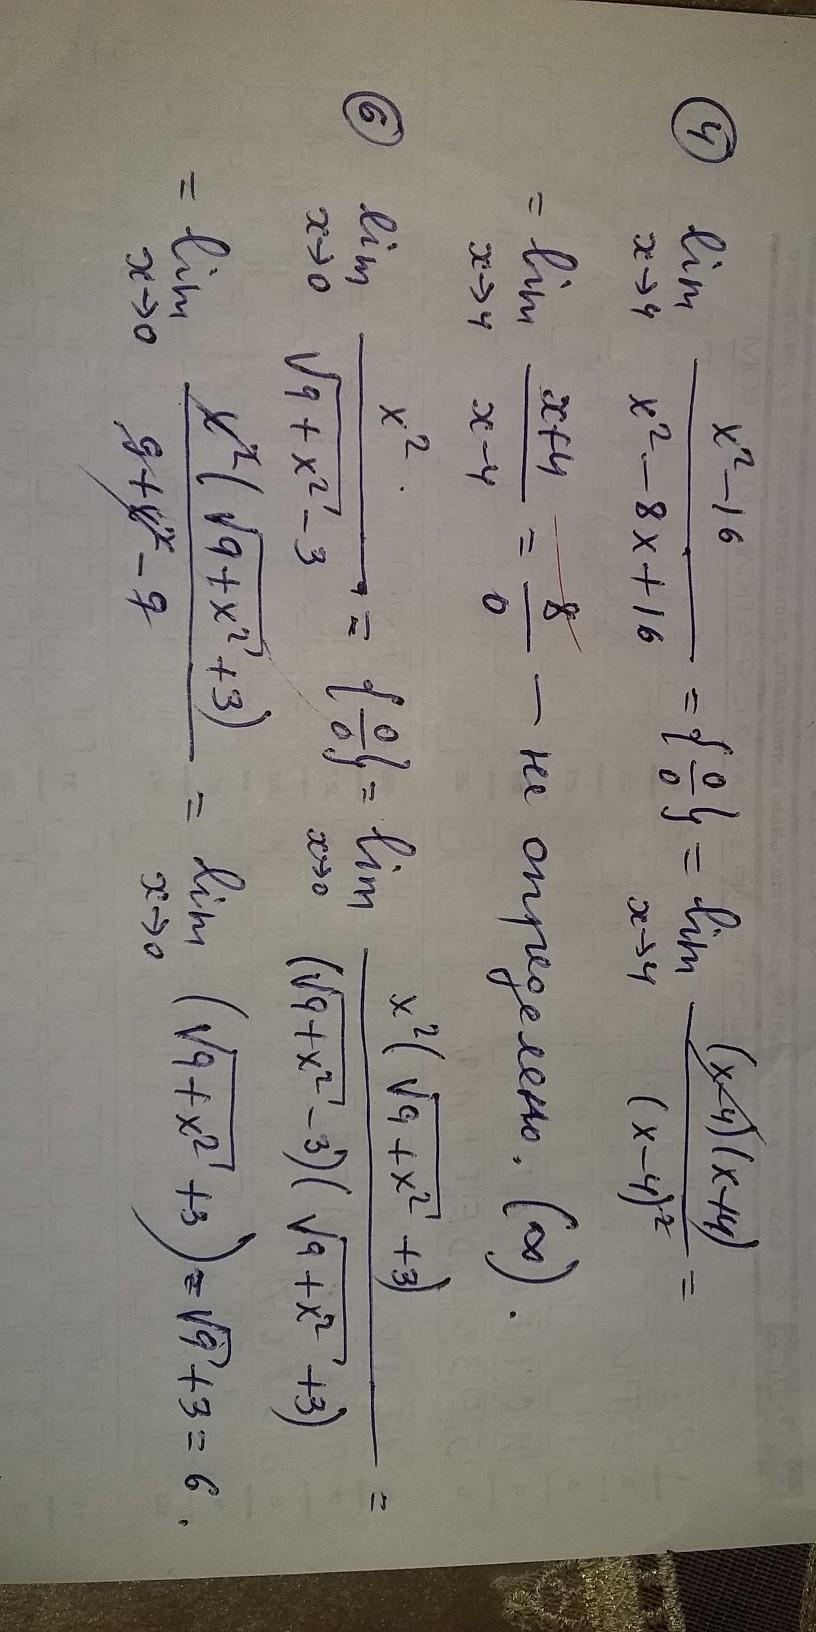 ④ lim x→4 (x² - 16)/(x² - 8x + 16) = {0/0} = lim x→4 ((x-4)(x+4))/((x-4)²) =
= lim x→4 (x+4)/(x-4) = 8/0 — не определено. (∞).
⑥ lim x→0 x²/(√(9+x²) - 3) = {0/0} = lim x→0 (x²(√(9+x²) + 3))/((√(9+x²) - 3)(√(9+x²) + 3)) =
= lim x→0 (x²(√(9+x²) + 3))/(9+x² - 9) = lim x→0 (√(9+x²) + 3) = √9 + 3 = 6.